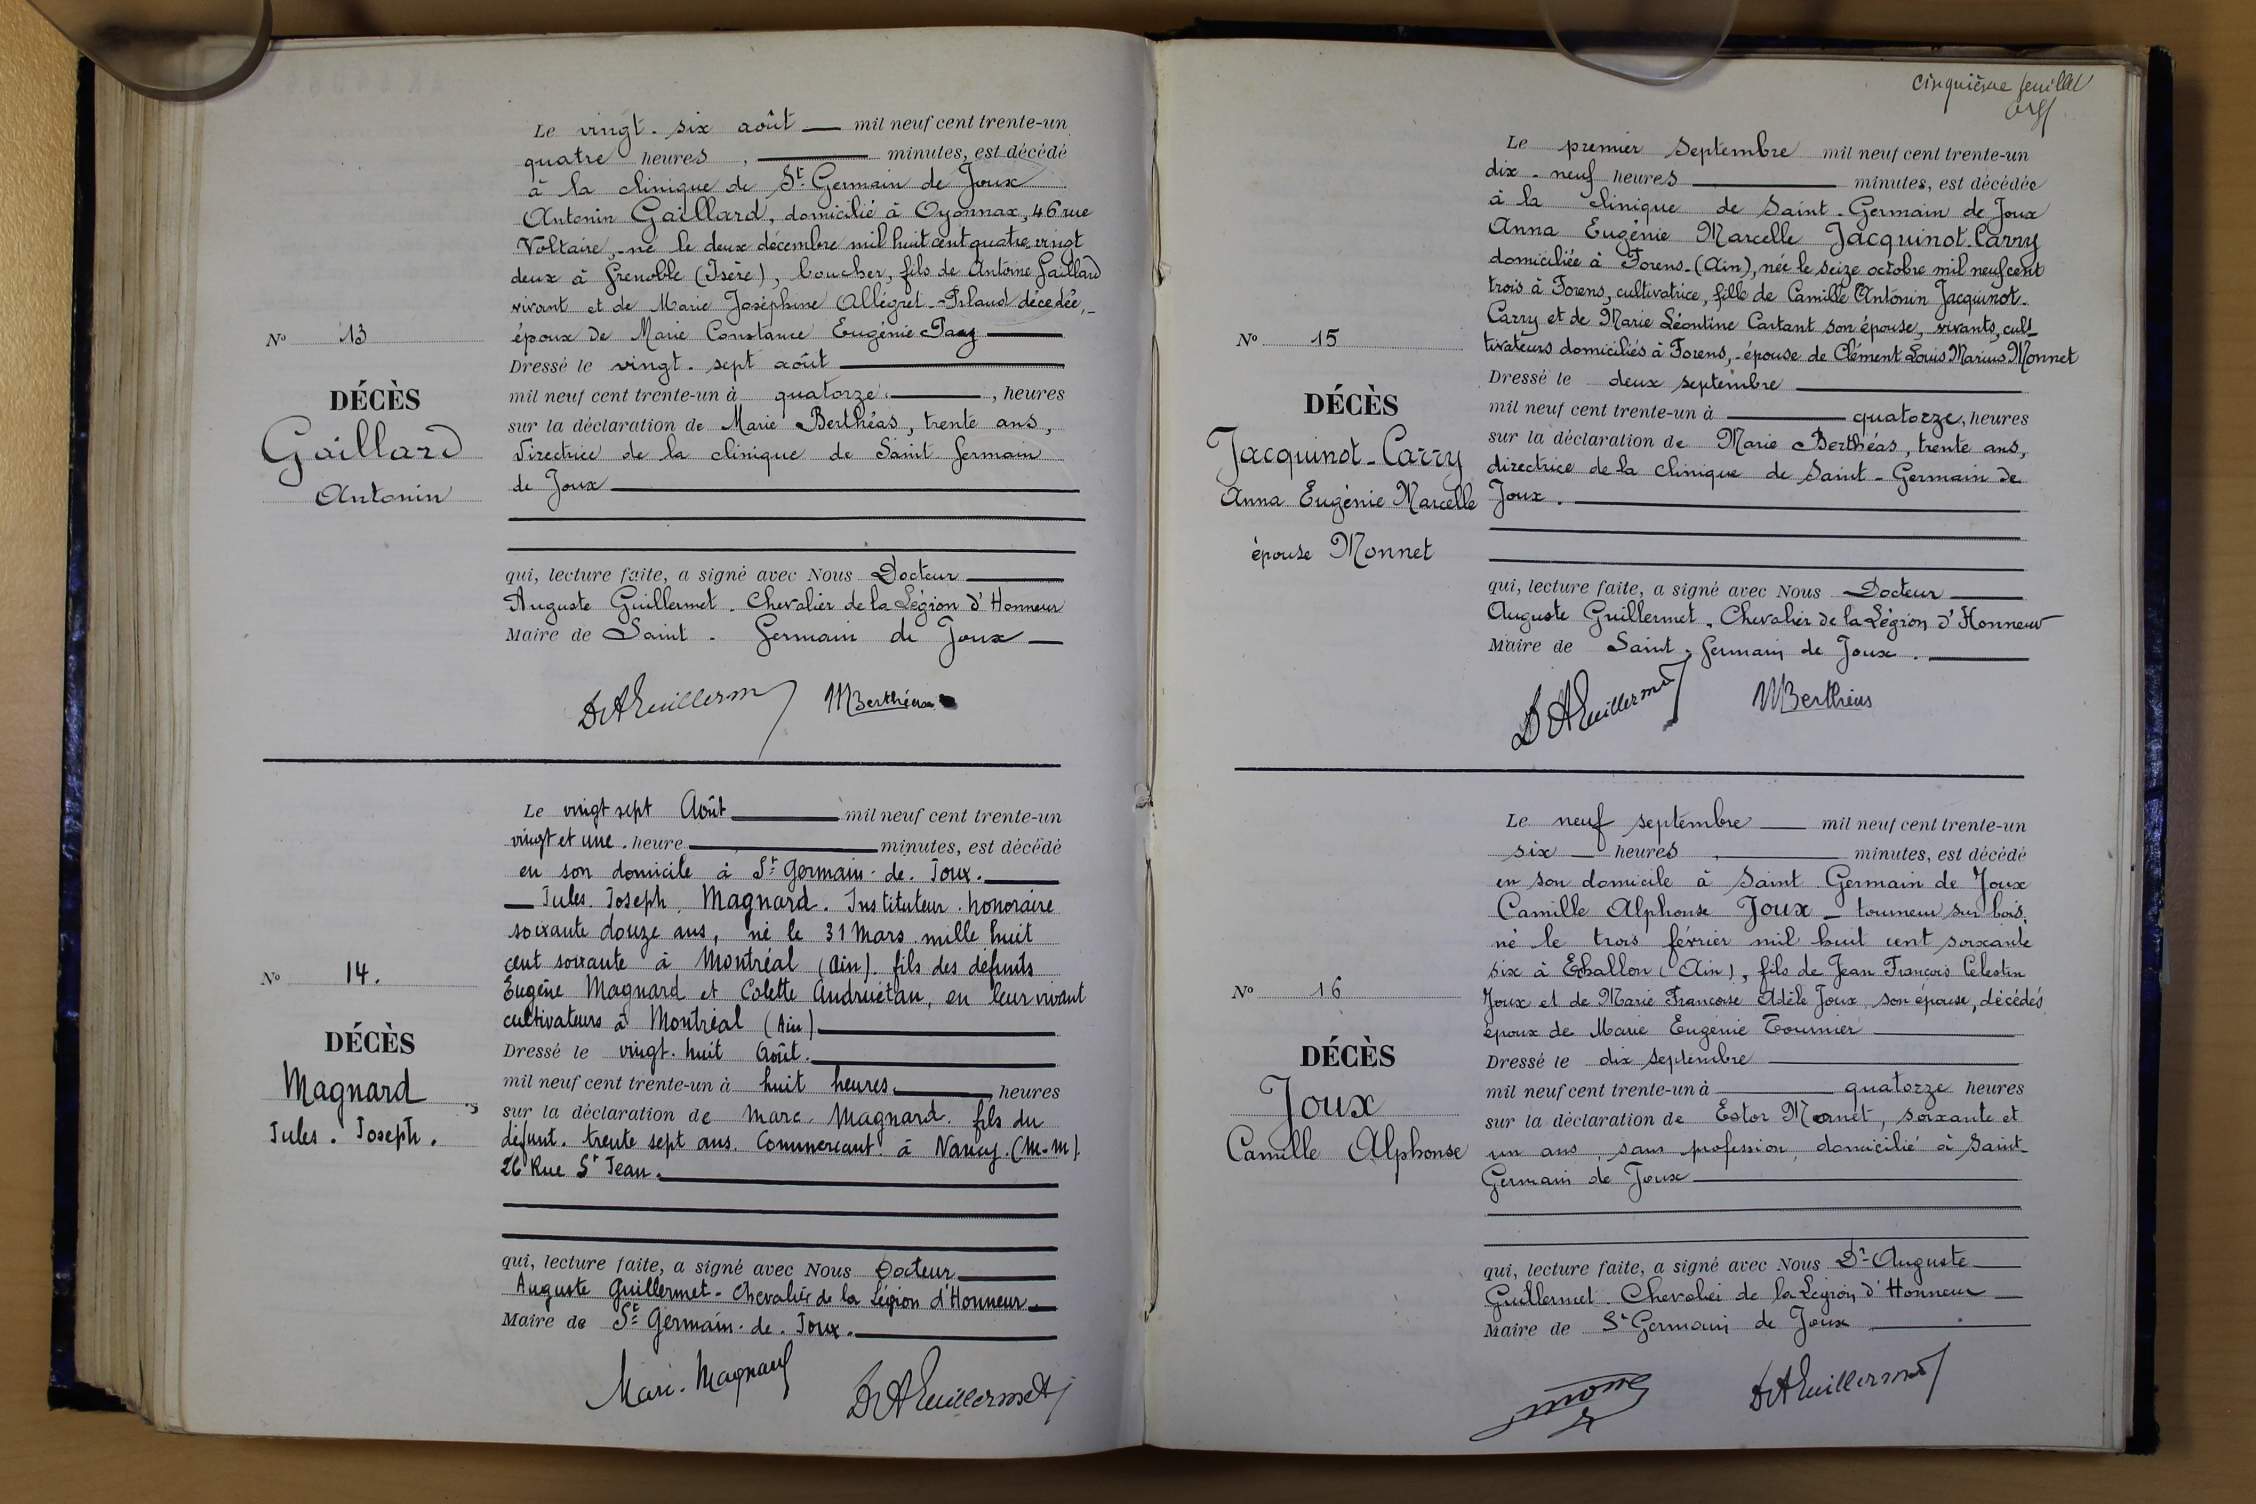 Le vingt-six août mil neuf cent trente-un
quatre heures, minutes, est décédé
à la clinique de St Germain de Joux
Antonin Gaillard, domicilié à Oyonnax, 46 rue
Voltaire, né le deux décembre mil huit cent quatre vingt
deux à Grenoble (Isère), boucher, fils de Antoine Gaillard
vivant et de Marie Joséphine Allégret décédée,
époux de Marie Constance Eugénie
No 13
Dressé le vingt-sept août
mil neuf cent trente-un à quatorze, heures
DÉCÈS
sur la déclaration de Marie Berthéas, trente ans,
Gaillard
Directrice de la clinique de Saint Germain
Antonin
de Joux
qui, lecture faite, a signé avec Nous Docteur
Auguste Guillermet. Chevalier de la Légion d'Honneur
Maire de Saint-Germain de Joux
Dr A Guillermet MBerthéas
Le vingt sept Août mil neuf cent trente-un
vingt et une heure minutes, est décédé
en son domicile à St Germain-de-Joux.
Jules Joseph Magnard. Instituteur honoraire
soixante douze ans, né le 31 Mars mille huit
cent soixante à Montréal (Ain). fils des défunts
No 14.
Eugène Magnard et Colette Andruétan, en leur vivant
cultivateurs à Montréal (Ain)
DÉCÈS
Dressé le vingt-huit Août.
Magnard
mil neuf cent trente-un à huit heures heures
Jules. Joseph.
sur la déclaration de Marc Magnard. fils du
défunt. trente sept ans. Commerçant à Nancy. (M-M).
26 Rue St Jean.
qui, lecture faite, a signé avec Nous Docteur
Auguste Guillermet. Chevalier de la Légion d'Honneur
Maire de St Germain-de-Joux.
Marc. Magnard Dr A Guillermet
cinquième feuillet
Le premier Septembre mil neuf cent trente-un
dix-neuf heures minutes, est décédée
à la clinique de Saint-Germain de Joux
Anna Eugénie Marcelle Jacquinot-Carry
domiciliée à Forens-(Ain), née le seize octobre mil neuf cent
trois à Forens, cultivatrice, fille de Camille Antonin Jacquinot-
Carry et de Marie Léontine Cartant son épouse, vivants, cul-
No 15
tivateurs domiciliés à Forens, - épouse de Clément Louis Marius Monnet
Dressé le deux septembre
DÉCÈS
mil neuf cent trente-un à quatorze, heures
Jacquinot-Carry
sur la déclaration de Marie Berthéas, trente ans,
directrice de la clinique de Saint-Germain de
Anna Eugénie Marcelle
Joux.
épouse Monnet
qui, lecture faite, a signé avec Nous Docteur
Auguste Guillermet, Chevalier de la Légion d'Honneur
Maire de Saint-Germain de Joux.
Dr A Guillermet MBerthéas
Le neuf septembre mil neuf cent trente-un
six heures, minutes, est décédé
en son domicile à Saint Germain de Joux
Camille Alphonse Joux - tourneur sur bois,
né le trois février mil huit cent soixante
six à Echallon (Ain), fils de Jean François Célestin
No 16
Joux et de Marie Françoise Adèle Joux son épouse, décédés
époux de Marie Eugénie Tournier
DÉCÈS
Dressé le dix septembre
mil neuf cent trente-un à quatorze heures
Joux
sur la déclaration de Estor Mornet, soixante et
Camille Alphonse
un ans, sans profession, domicilié à Saint-
Germain de Joux
qui, lecture faite, a signé avec Nous Dr Auguste
Guillermet. Chevalier de la Légion d'Honneur
Maire de St Germain de Joux
Dr A Guillermet